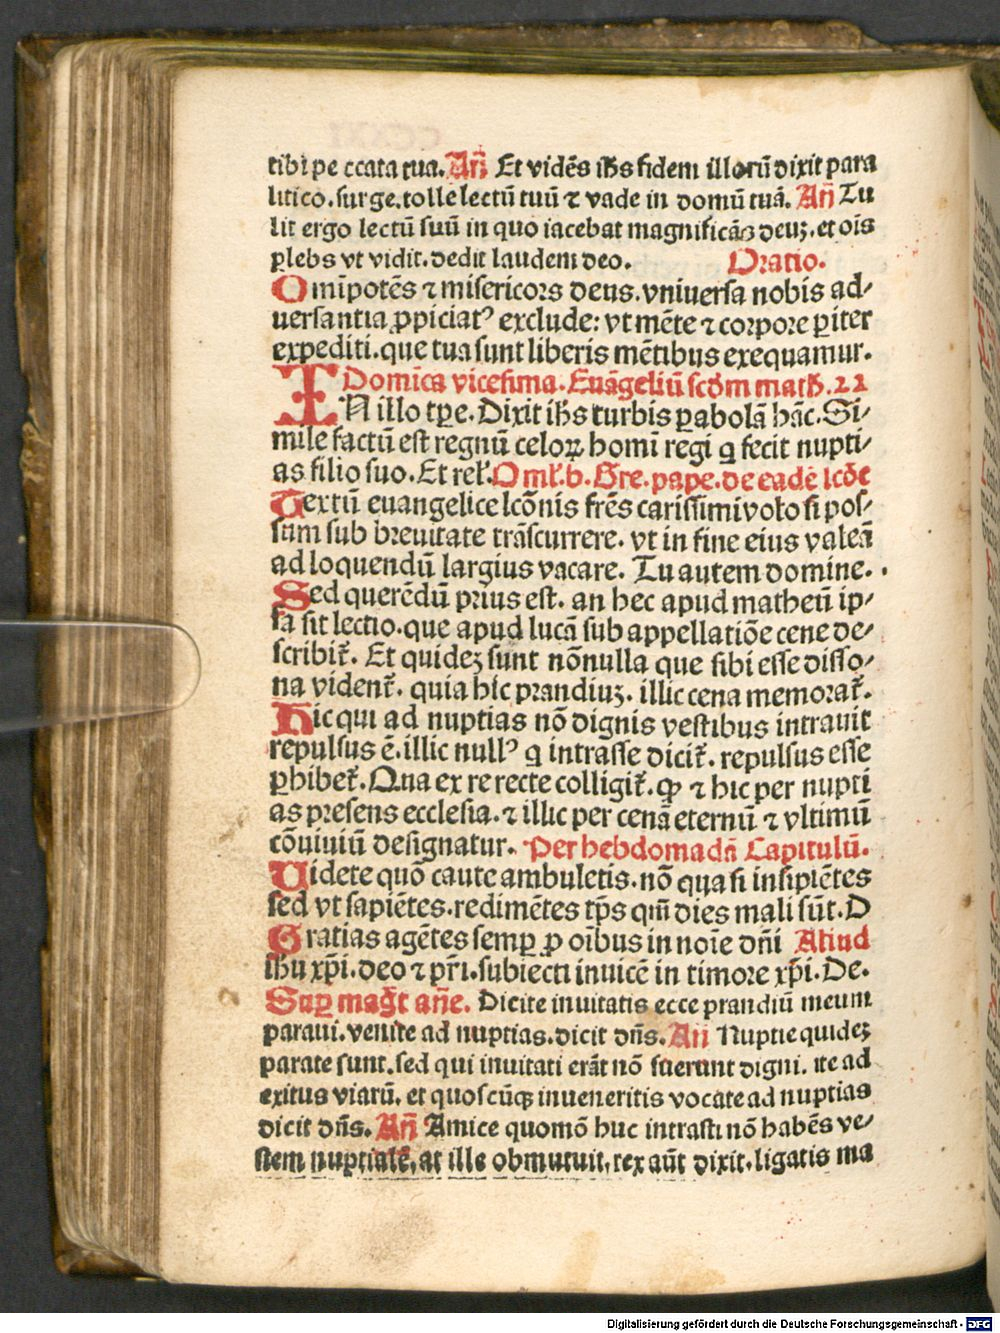 tibi peccata tua. Añ Et vidēs ihs fidem illorū dixit para
litico. surge. tolle lectū tuū ⁊ vade in domū tuā. Añ Tu
lit ergo lectū suū in quo iacebat magnificās deuꝫ. et oīs
plebs vt vidit. dedit laudem deo. Oratio.
Omīpotēs ⁊ misericors deus. vniuersa nobis ad⸗
uersantia ꝓpiciatꝰ exclude: vt mēte ⁊ corpore ꝑiter
expediti. que tua sunt liberis mētibus exequamur.
Domīca vicesima. Euāgeliū scḋm math. 22
IN illo tꝑe. Dixit ihs turbis ꝑabolā hāc. Si⸗
mile factū est regnū celoꝝ homī regi q fecit nupti⸗
as filio suo. Et rel. Oml. b. Gre. pape. de eadē lcōe
Textū euangelice lcōnis frēs carissimi volo si pos⸗
sum sub breuitate trāscurrere. vt in fine eius valeā
ad loquendū largius vacare. Tu autem domine.
Sed querēdū prius est. an hec apud matheū ip⸗
sa sit lectio. que apud lucā sub appellatiōe cene de⸗
scribit̄. Et quideꝫ sunt nōnulla que sibi esse disso⸗
na vident̄. quia hic prandiuꝫ. illic cena memorat̄.
Hic qui ad nuptias nō dignis vestibus intrauit
repulsus ē. illic nullꝰ q intrasse dicit̄. repulsus esse
ꝑhibet̄. Qua ex re recte colligit̄. ꝙ ⁊ hic per nupti
as presens ecclesia. ⁊ illic per cenā eternū ⁊ vltimū
cōuiuiū designatur. Per hebdomadā Capitulū.
Videte quō caute ambuletis. nō quasi insipiētes
sed vt sapiētes. redimētes tp̄s qm̄ dies mali sūt. D
Gratias agētes semꝑ ꝓ oībus in noīe dn̄i Aliud
ihu xp̄i. deo ⁊ pr̄i. subiecti inuicē in timore xp̄i. De.
Suꝑ magt̄ añe. Dicite inuitatis ecce prandiū meum
paraui. venite ad nuptias. dicit dn̄s. Añ Nuptie quideꝫ
parate sunt. sed qui inuitati erāt nō fuerunt digni. ite ad
exitus viarū. et quoscūqꝫ inueneritis vocate ad nuptias
dicit dn̄s. Añ Amice quomō huc intrasti nō habēs ve⸗
stem nuptialē. at ille obmutuit. rex aūt dixit. ligatis ma
Digitalisierung gefördert durch die Deutsche Forschungsgemeinschaft - DFG